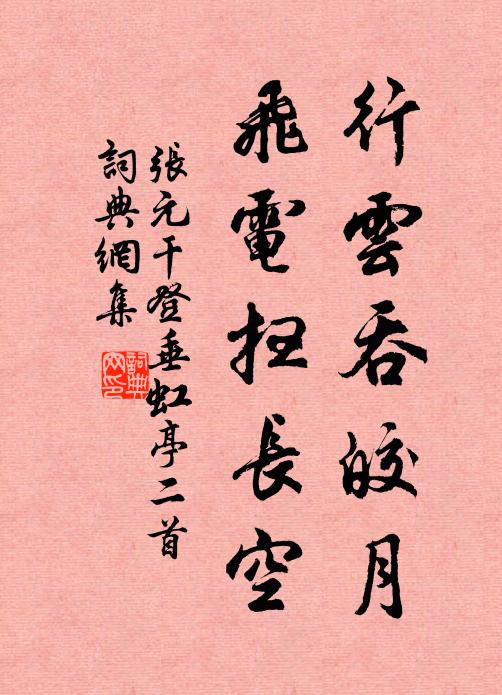 行雲吞皎月
飛電扫長空
張元干登垂虹亭二首
詞典網集
詞典網印